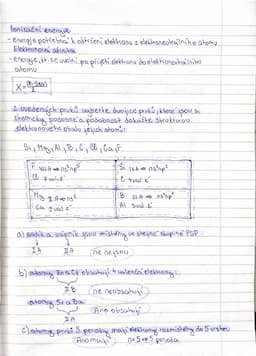 Ionizační energie
- energie potřebná k odtržení elektronu z elektroneutrálního atomu
Elektronová afinita
- energie, kt. se uvolní po přijetí elektronu do elektroneutrálního
atomu
X =
2. Z uvedených prvků vyberte dvojice prvků, které jsou si
chemicky podobné a podobnost dokažte strukturou
elektronového obalu jejich atomů:
Si, Mg, Al, B, C, Cl, Ca, F
F VIIA ⇒ ns²np⁵
Cl 7 val. e⁻
Si IVA ⇒ ns²np²
C 4 val. e⁻
Mg IIA ⇒ ns²
Ca 2 val. e⁻
B IIIA ⇒ ns²np¹
Al 3 val. e⁻
a) sodík a vápník jsou umístěny ve stejné skupině PSP
IA IIA ne nejsou
b) atomy Zn a Cd obsahují 4 valenční elektrony
IIB ne neobsahují
atomy Sr a Ba
IIA Ano obsahují
c) atomy prvků 5. periody mají elektrony rozmístěny do 5 vrstev
Ano mají n=5 ⇒ 5 perioda